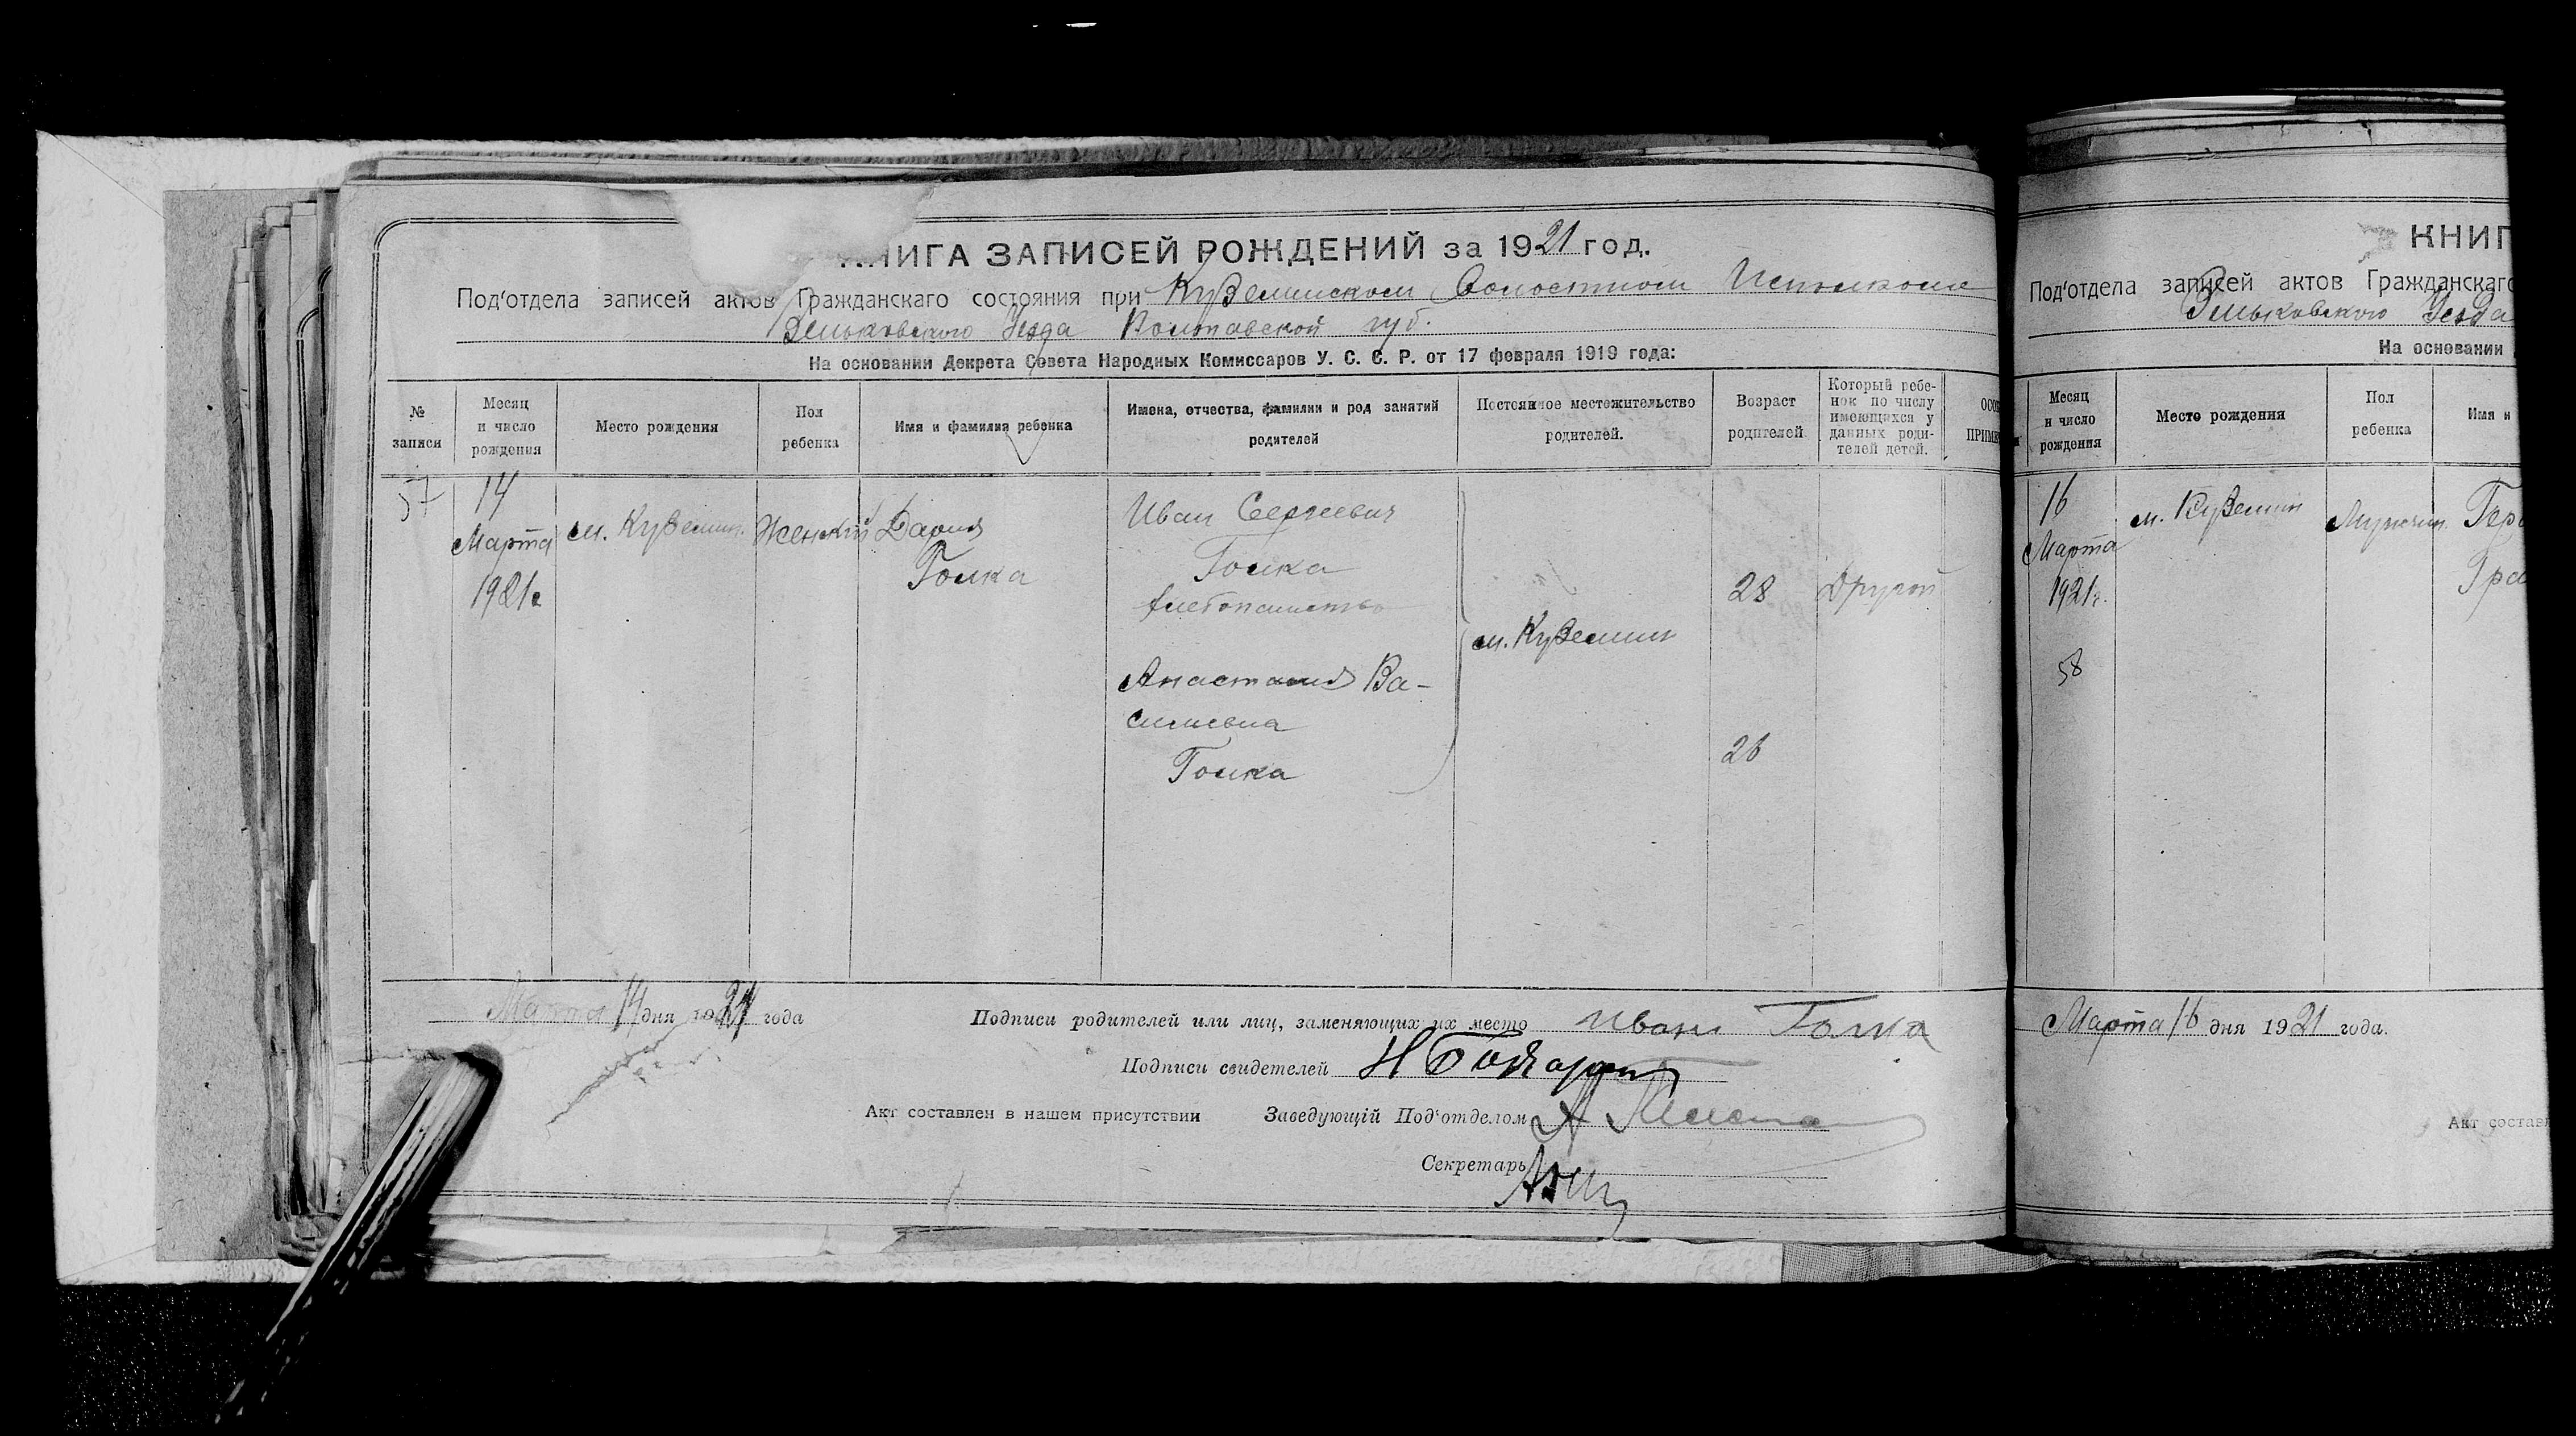 КНИГА ЗАПИСЕЙ РОЖДЕНИЙ за 1921 год.
Под'отдела записей актов Гражданскаго состояния при Куземинском Волостном Исполкоме
Зеньковского Уезда Полтавской губ.
На основании Декрета Совета Народных Комиссаров У. С. С. Р. от 17 февраля 1919 года:
№ записи
Месяц и число рождения
Место рождения
Пол ребенка
Имя и фамилия ребенка
Имена, отчества, фамилии и род занятий родителей
Постоянное местожительство родителей.
Возраст родителей
Который ребе-
нок по числу
имеющихся у
данных роди-
телей детей.
ОСО
ПРИМЕ
57
14
Марта
1921г
м. Куземин.
Женский
Дария
Голка
Иван Сергеевич
Голка
хлебопашество
Анастасия Ва-
силиевна
Голка
м. Куземин
28
26
Другой
Марта 14 дня 1921 года
Подписи родителей или лиц, заменяющих их место Иван Голка
Подписи свидетелей
Акт составлен в нашем присутствии Заведующій Под'отделом
Секретарь
КНИГ
Под'отдела записей актов Гражданскаго
Зеньковского Уезда
На основании
Месяц и число рождения
Место рождения
Пол ребенка
Имя и
16
Марта
1921г.
58
м. Куземин
Мужчин.
Марта 16 дня 1921 года.
Акт состав